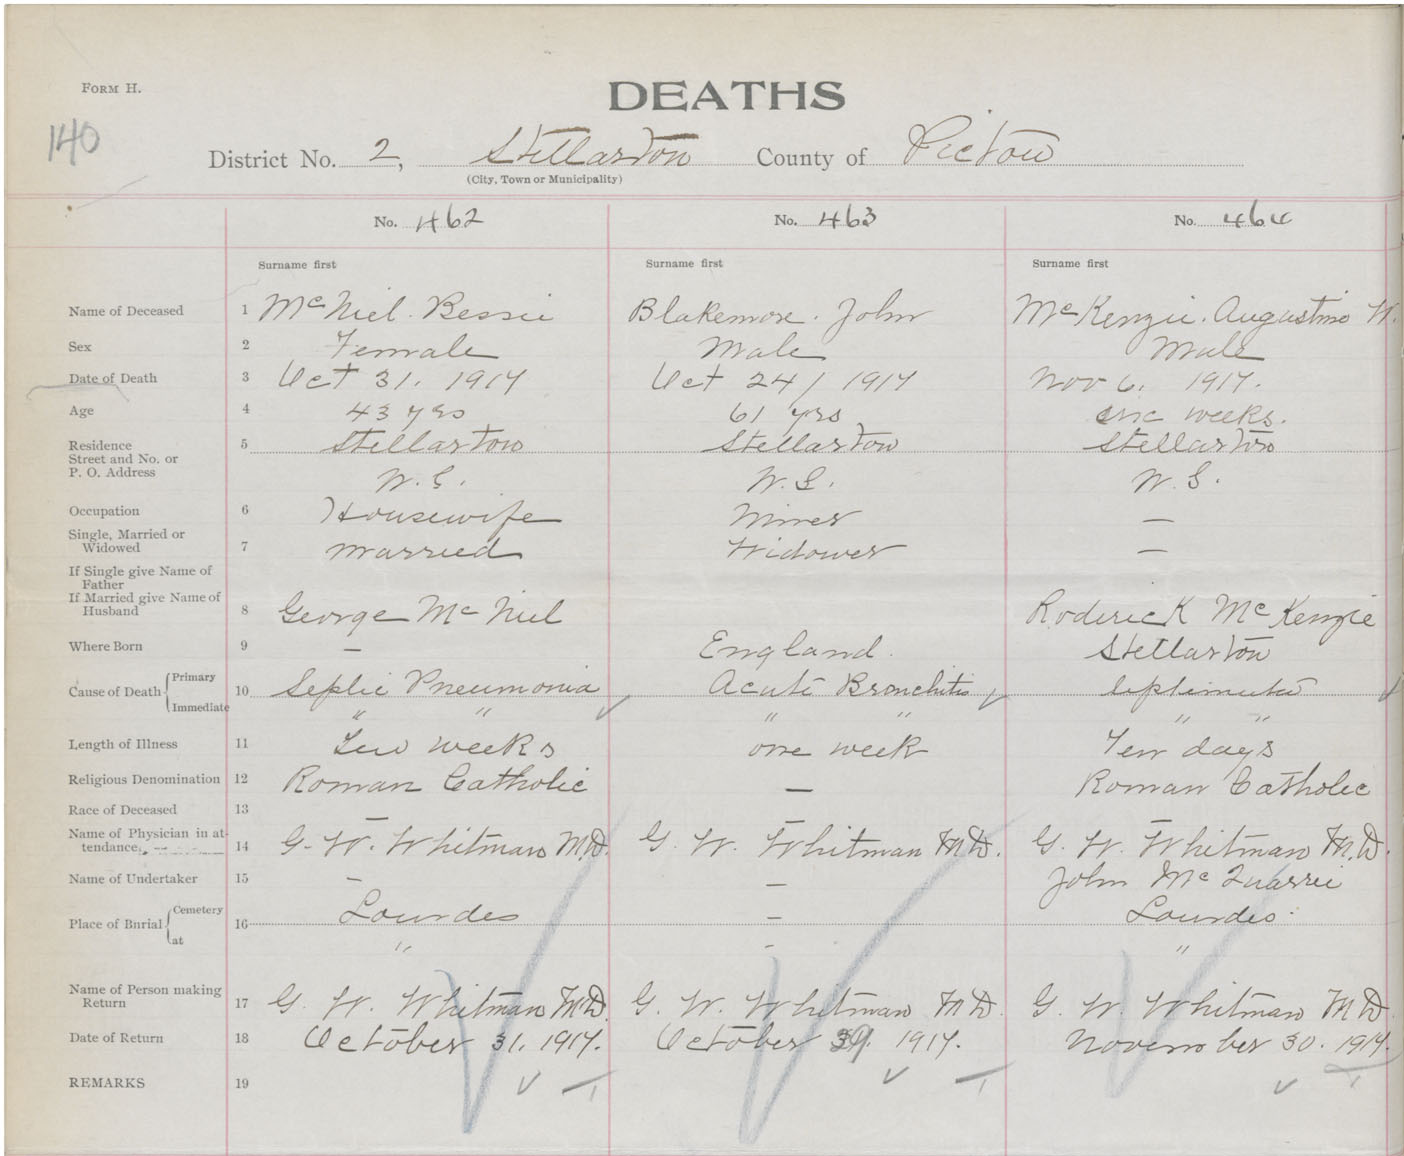 FORM H.
DEATHS
140
District No. 2, Stellarton County of Pictou
(City, Town or Municipality)
No. 462 No. 463 No. 464
Surname first Surname first Surname first
Name of Deceased 1 McNiel. Bessie Blakemore. John McKenzie. Augustine W.
Sex 2 Female Male Male
Date of Death 3 Oct 31. 1917 Oct 24/ 1917 Nov 6. 1917.
Age 4 43 yrs 61 yrs weeks.
Residence 5 Stellarton Stellarton Stellarton
Street and No. or
P. O. Address N.S. N.S. N.S.
Occupation 6 Housewife Miner —
Single, Married or
Widowed 7 Married Widower —
If Single give Name of
Father
If Married give Name of
Husband 8 George McNiel Roderick McKenzie
Where Born 9 — England. Stellarton
Cause of Death Primary 10 Septic Pneumonia Acute Bronchitis
Immediate " " " " " "
Length of Illness 11 weeks one week Ten days
Religious Denomination 12 Roman Catholic — Roman Catholic
Race of Deceased 13 — — —
Name of Physician in at-
tendance 14 G. W. Whitman M.D. G. W. Whitman M.D. G. W. Whitman M.D.
Name of Undertaker 15 — — John McQuarrie
Place of Burial Cemetery 16 Lourdes — Lourdes
at " - "
Name of Person making
Return 17 G. W. Whitman M.D. G. W. Whitman M.D. G. W. Whitman M.D.
Date of Return 18 October 31. 1917. October 1917. November 30. 1917.
REMARKS 19